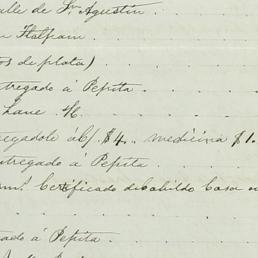 alle de Sn. Agustin
n Halfram.
os de plata)
tregado á Pepita.
Chave H.
egadole á C/ $4. medicina $1.
ntregado á Pepita.
Certificado de Cabildo Casa
ado á Pepita.